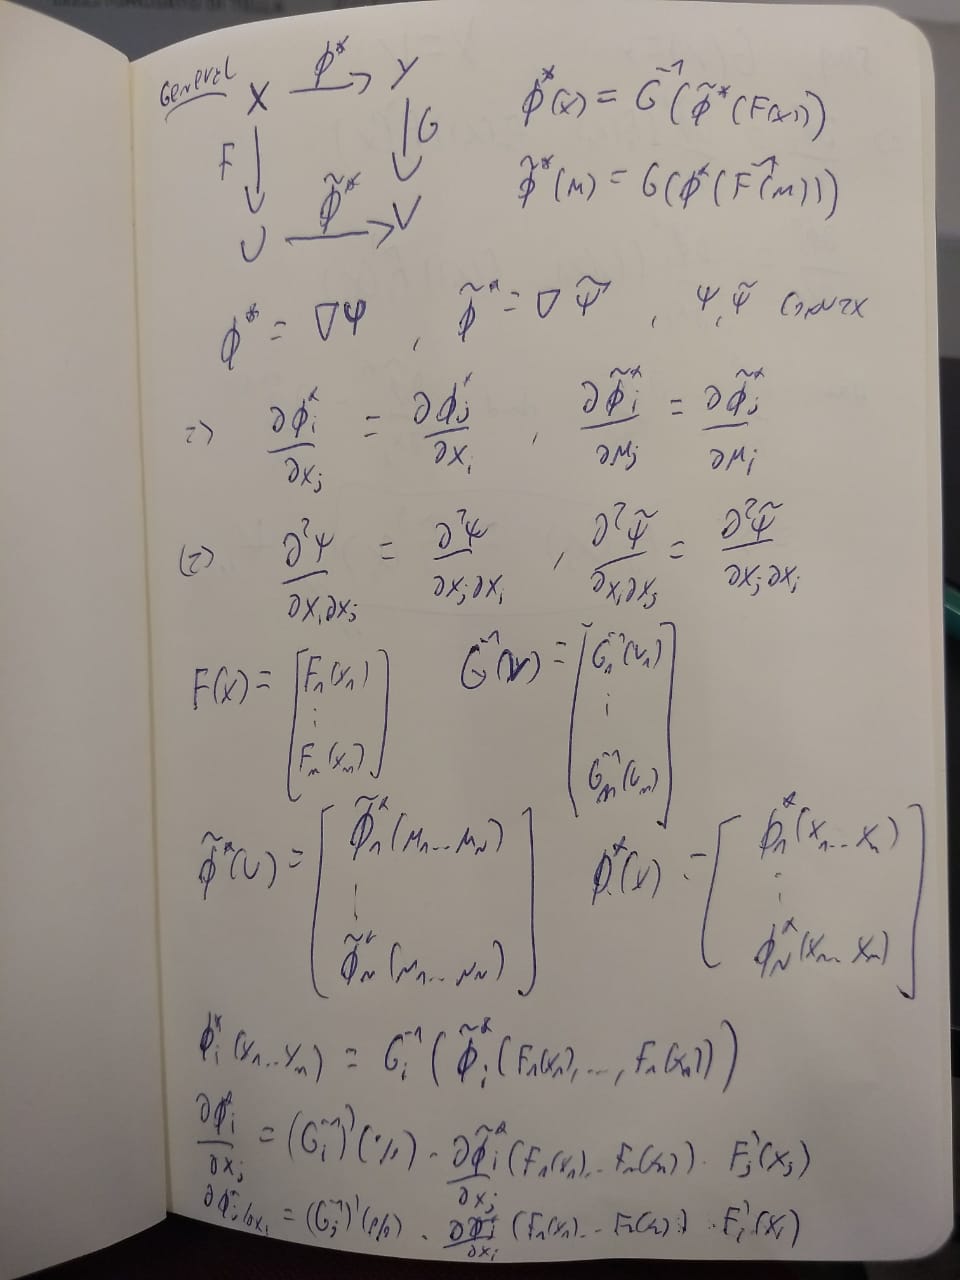 General X —ϕ*→ Y ϕ*(x) = G⁻¹(ϕ̃*(F(x)))
F ↓ ↓ G
U —ϕ̃*→ V ϕ̃*(u) = G(ϕ*(F⁻¹(u)))
ϕ* = ∇ψ , ϕ̃* = ∇ψ̃ , ψ, ψ̃ convex
=> ∂ϕ*i/∂xj = ∂ϕ*j/∂xi , ∂ϕ̃*i/∂uj = ∂ϕ̃*j/∂ui
(=) ∂²ψ/∂xi∂xj = ∂²ψ/∂xj∂xi , ∂²ψ̃/∂xi∂xj = ∂²ψ̃/∂xj∂xi
F(x) = [F1(x1) ⋮ Fn(xn)] G⁻¹(v) = [G1⁻¹(v1) ⋮ Gn⁻¹(vn)]
ϕ̃*(u) = [ϕ̃*1(u1...un) ⋮ ϕ̃*n(u1...un)] ϕ*(x) = [ϕ*1(x1...xn) ⋮ ϕ*n(x1...xn)]
ϕ*i(x1...xn) = Gi⁻¹(ϕ̃*i(F1(x1),...,Fn(xn)))
∂ϕ*i/∂xj = (Gi⁻¹)'(%) · ∂ϕ̃*i/∂xj (F1(x1)...Fn(xn)) · Fj'(xj)
∂ϕ*j/∂xi = (Gj⁻¹)'(%) · ∂ϕ̃*j/∂xi (F1(x1)...Fn(xn)) · Fi'(xi)